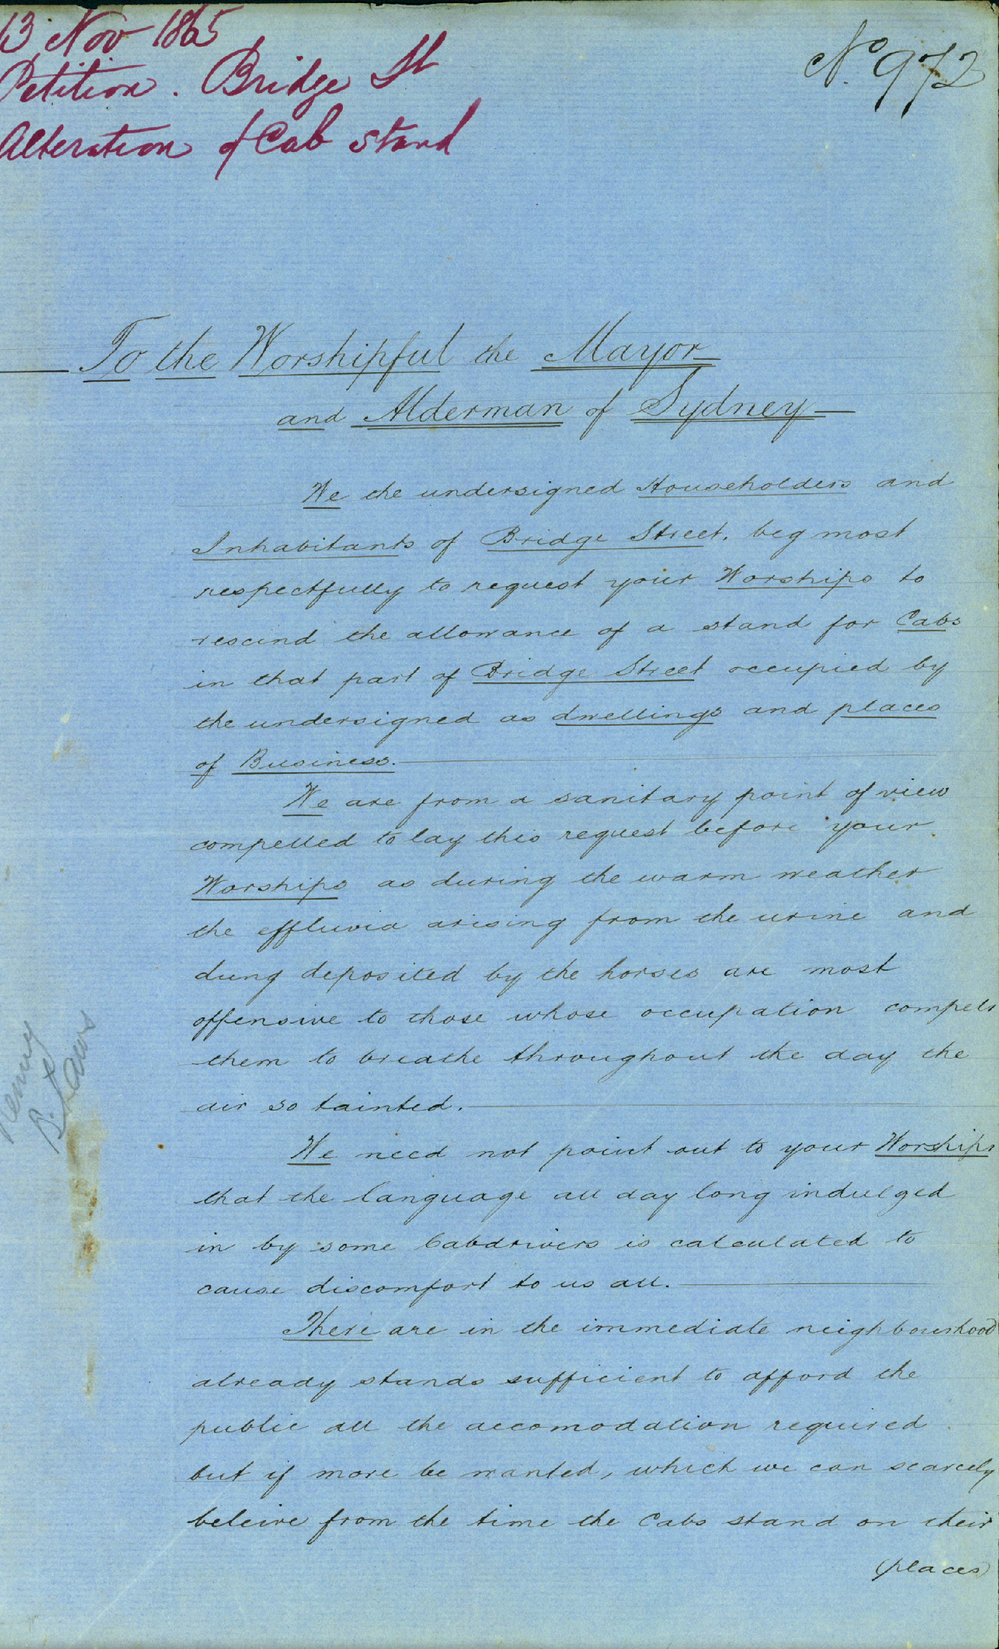 13 Nov 1865
Petition. Bridge St
Alteration of Cab stand
No. 972
To the Worshipful the Mayor
and Alderman of Sydney
We the undersigned Householders and
Inhabitants of Bridge Street, beg most
respectfully to request your Worships to
rescind the allowance of a stand for Cabs
in that part of Bridge Street occupied by
the undersigned as dwellings and places
of Business.
We are from a sanitary point of view
compelled to lay this request before your
Worships as during the warm weather
the effluvia arising from the urine and
dung deposited by the horses are most
offensive to those whose occupation compels
them to breathe throughout the day the
air so tainted.
We need not point out to your Worships
that the language all day long indulged
in by some Cabdrivers is calculated to
cause discomfort to us all.
There are in the immediate neighbourhood
already stands sufficient to afford the
public all the accomodation required
but if more be wanted, which we can scarcely
beleive from the time the Cabs stand on their
(places)